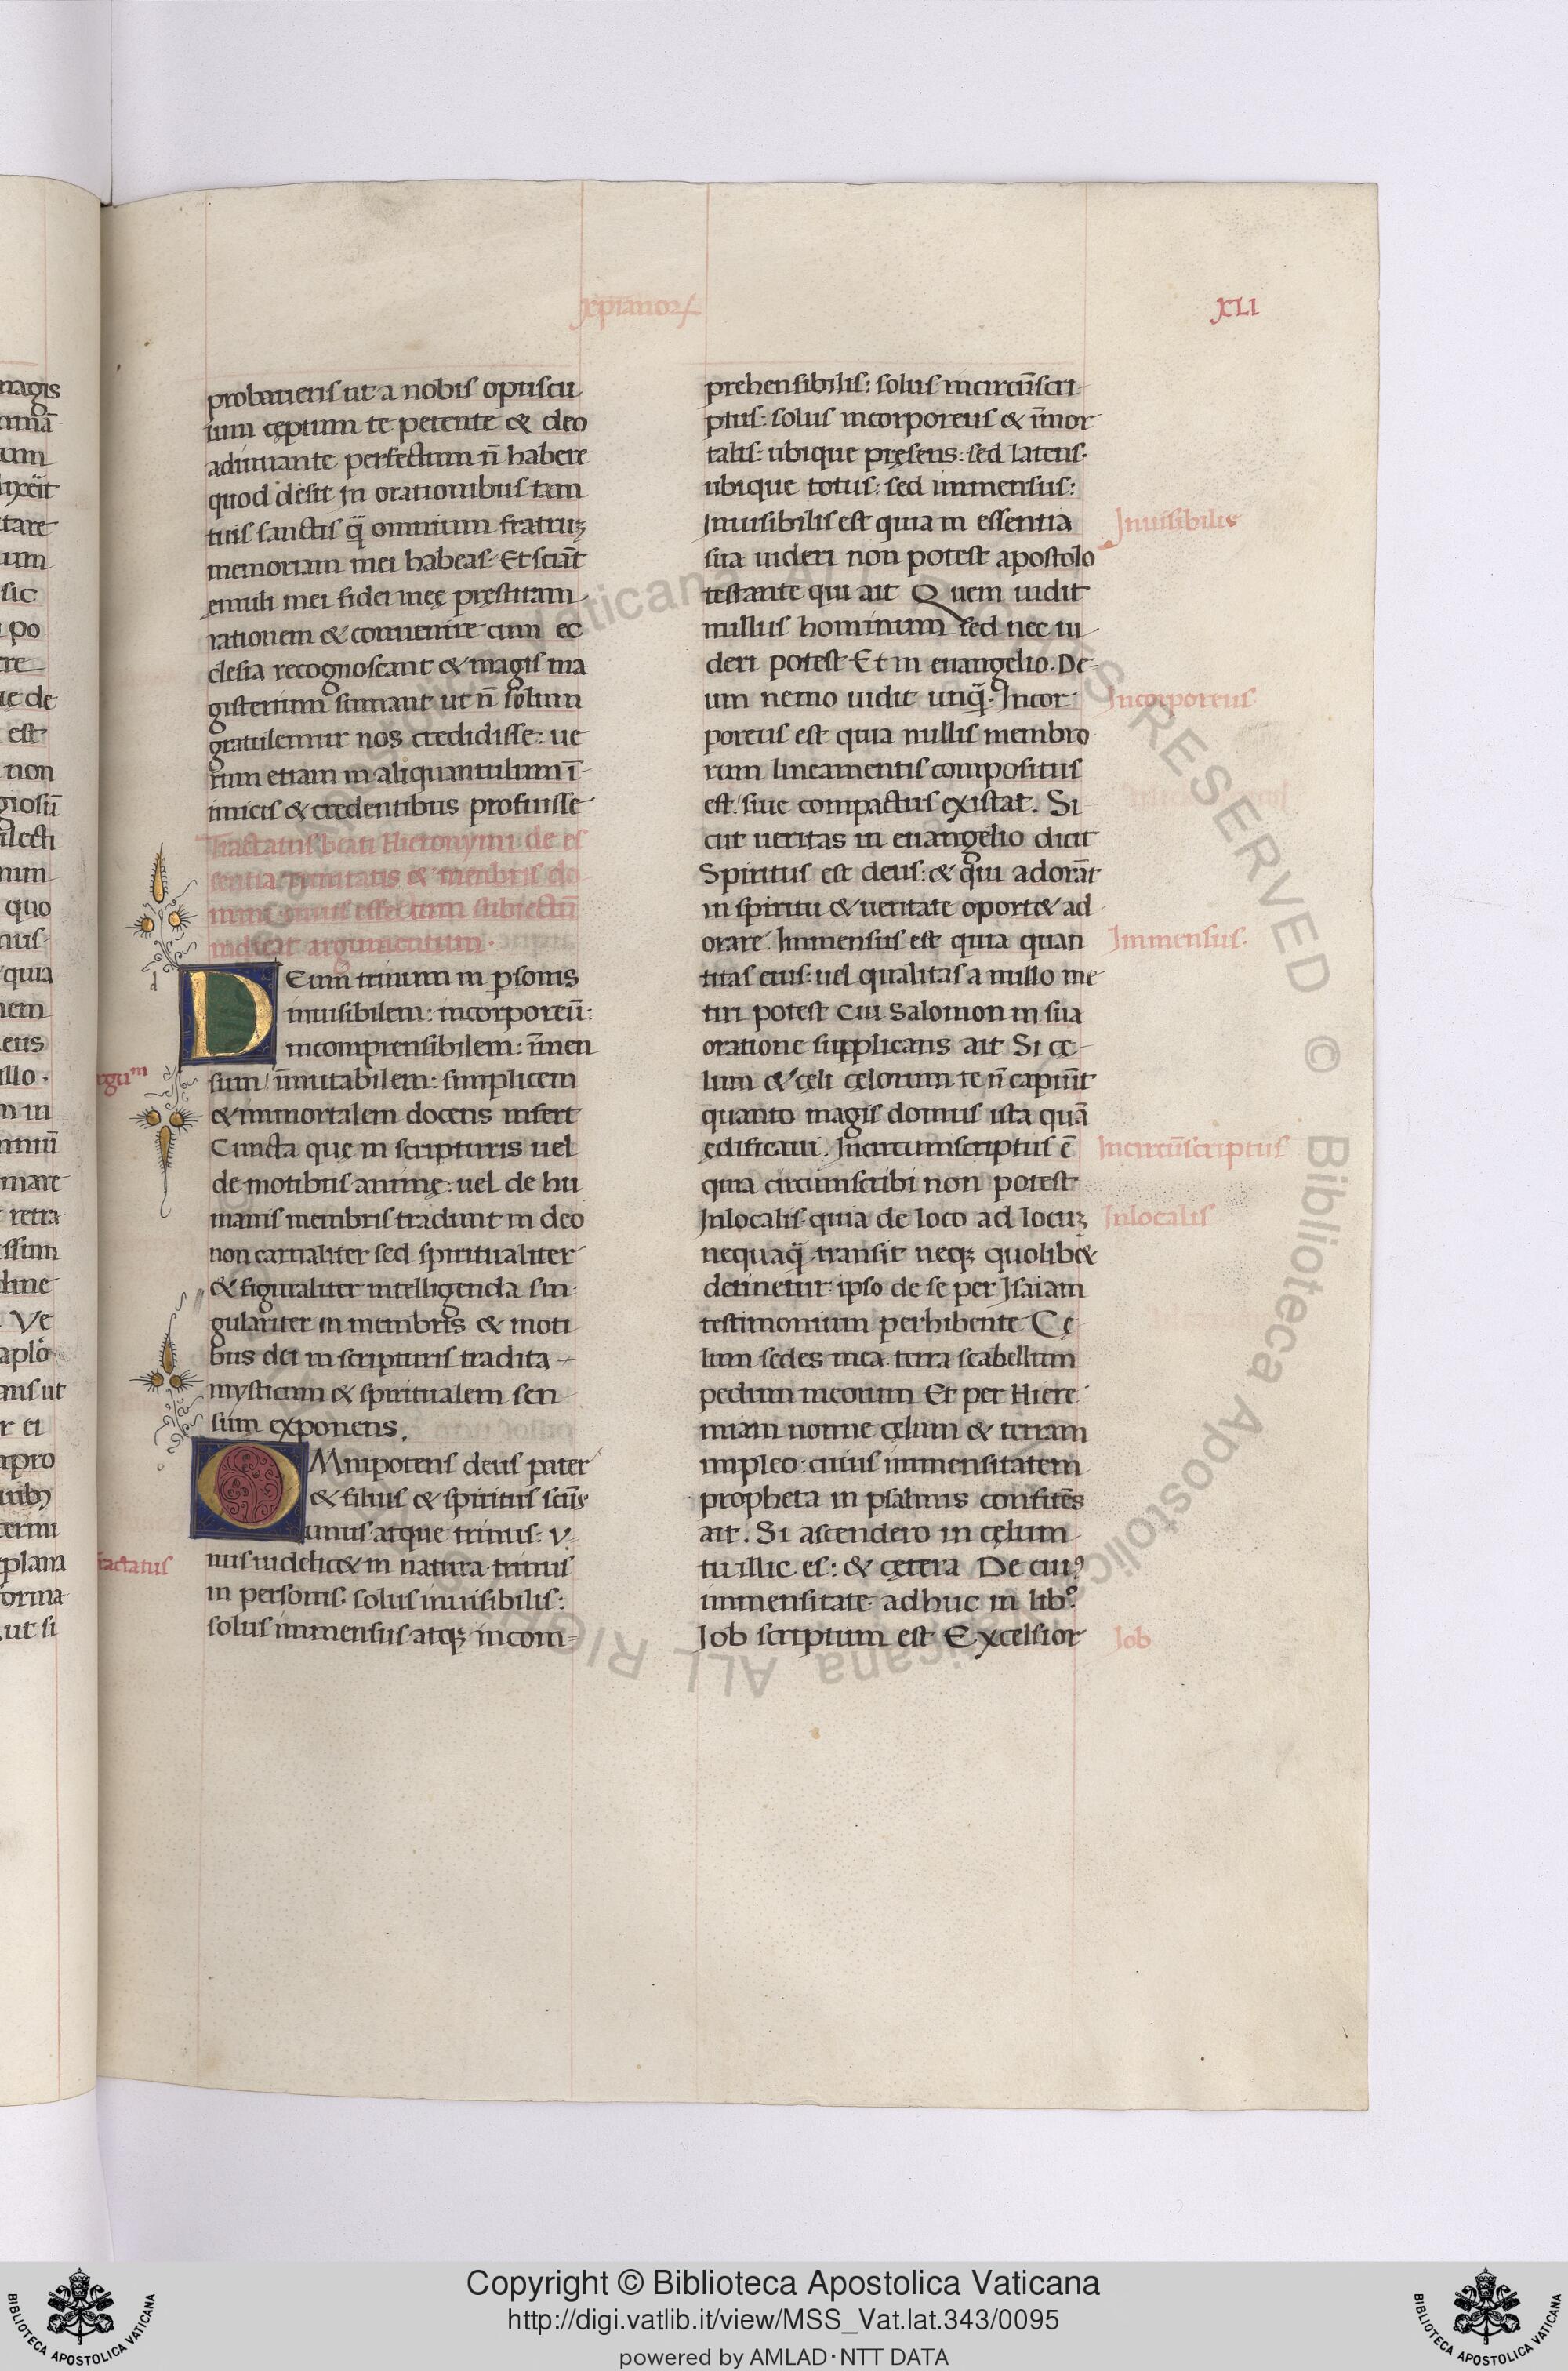 xp̄ianoꝝ
XLI
probaueris ut a nobis opuscu
lum cęptum te petente & deo
adiuuante perfectum n̄ habere
quod desit In orationibus tam
tuis sanctis q̄ omnium fratruꝫ
memoriam mei habeas. Et scian̄t
emuli mei fidei meę pręstitam
rationem & conuenire cum ec
clesia recognoscant & magis ma
gisterium sumant ut n̄ solum
gratulemur nos credidisse: ue
rum etiam in aliquantulum ī-
imicis & credentibus profuisse
Tractatus beati Hieronymi de es
sentia trinitatis & membris do
mini unius esse cum subiectū
indicat argumentum.
Deum trinum in psonis
inuisibilem: incorporeū:
incomprensibilem: īmen
sum īmutabilem: simplicem
& immortalem docens infert
Cuncta que in scripturis uel
de motibus animę: uel de hu
manis membris tradunt in deo
non carnaliter sed spiritualiter
& figuraliter intelligenda sin-
gulariter in membris & moti
bus dei in scripturis tradita -
mysticum & spiritualem sen
sum exponens.
OMnipotens deus pater
& filius & spiritus scūs
unus atque trinus: V-
nus uidelic& in natura trinus
in personis: solus inuisibilis:
solus immensus atqꝫ incom-
tractatus
prehensibilis: solus incircūscri
ptus: solus incorporeus & īmor
talis: ubique pręsens: sed latens.
ubique totus: sed immensus:
Inuisibilis est quia in essentia
sua uideri non potest apostolo
testante qui ait Quem uidit
nullus hominum sed nec ui
deri potest Et in euangelio. De-
um nemo uidit unq̄. Incor
poreus est quia nullis membro
rum lineamentis compositus
est: siue compactus existat. Si
cut ueritas in euangelio dicit
Spiritus est deus: & qui adorān̄t
in spiritu & ueritate oport& ad
orare. Immensus est quia quan
titas eius: uel qualitas a nullo me
tiri potest Cui Salomon in sua
oratione supplicans ait Si cę-
lum & cęli cęlorum te n̄ capiūt
quanto magis domus ista quā
ędificaui. Incircumscriptus ē
quia circumscribi non potest
Inlocalis quia de loco ad locuꝫ
nequaq̄ transit neqꝫ quolib&
detinetur: ipso de se per Isaiam
testimonium perhibente Cę
lum sedes mea. terra scabellum
pedum meorum Et per Hiere
miam nonne cęlum & terram
impleo: cuius immensitatem
propheta in psalmis confitēs
ait. Si ascendero in cęlum
tu illic es: & cętera De cui9
immensitate adhuc in lib°
Iob scriptum est Excelsior
Inuisibilis
Incorporeus
Immensus.
Incircūscriptus
Inlocalis
Iob
Copyright © Biblioteca Apostolica Vaticana
http://digi.vatlib.it/view/MSS_Vat.lat.343/0095
powered by AMLAD·NTT DATA
BIBLIOTECA APOSTOLICA VATICANA
BIBLIOTECA APOSTOLICA VATICANA